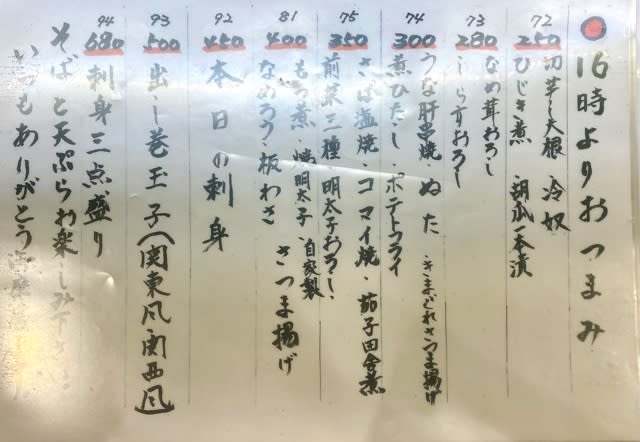 16時よりおつまみ
72
250
切干し大根・冷奴
ひじき煮・胡瓜一本漬
73
280
なめ茸おろし
しらすおろし
74
300
うな肝串焼・ぬた・きまぐれさつま揚げ
煮ひたし・ポテトフライ
75
350
さば塩焼・コマイ焼・茄子田舎煮
前菜三種・明太子おろし
81
400
もつ煮・焼明太子・自家製
なめろう・板わさ さつま揚げ
92
450
本日の刺身
93
500
出し巻玉子(関東風・関西風)
94
680
刺身三点盛り
そばと天ぷらお楽しみ下さい
いつもありがとう